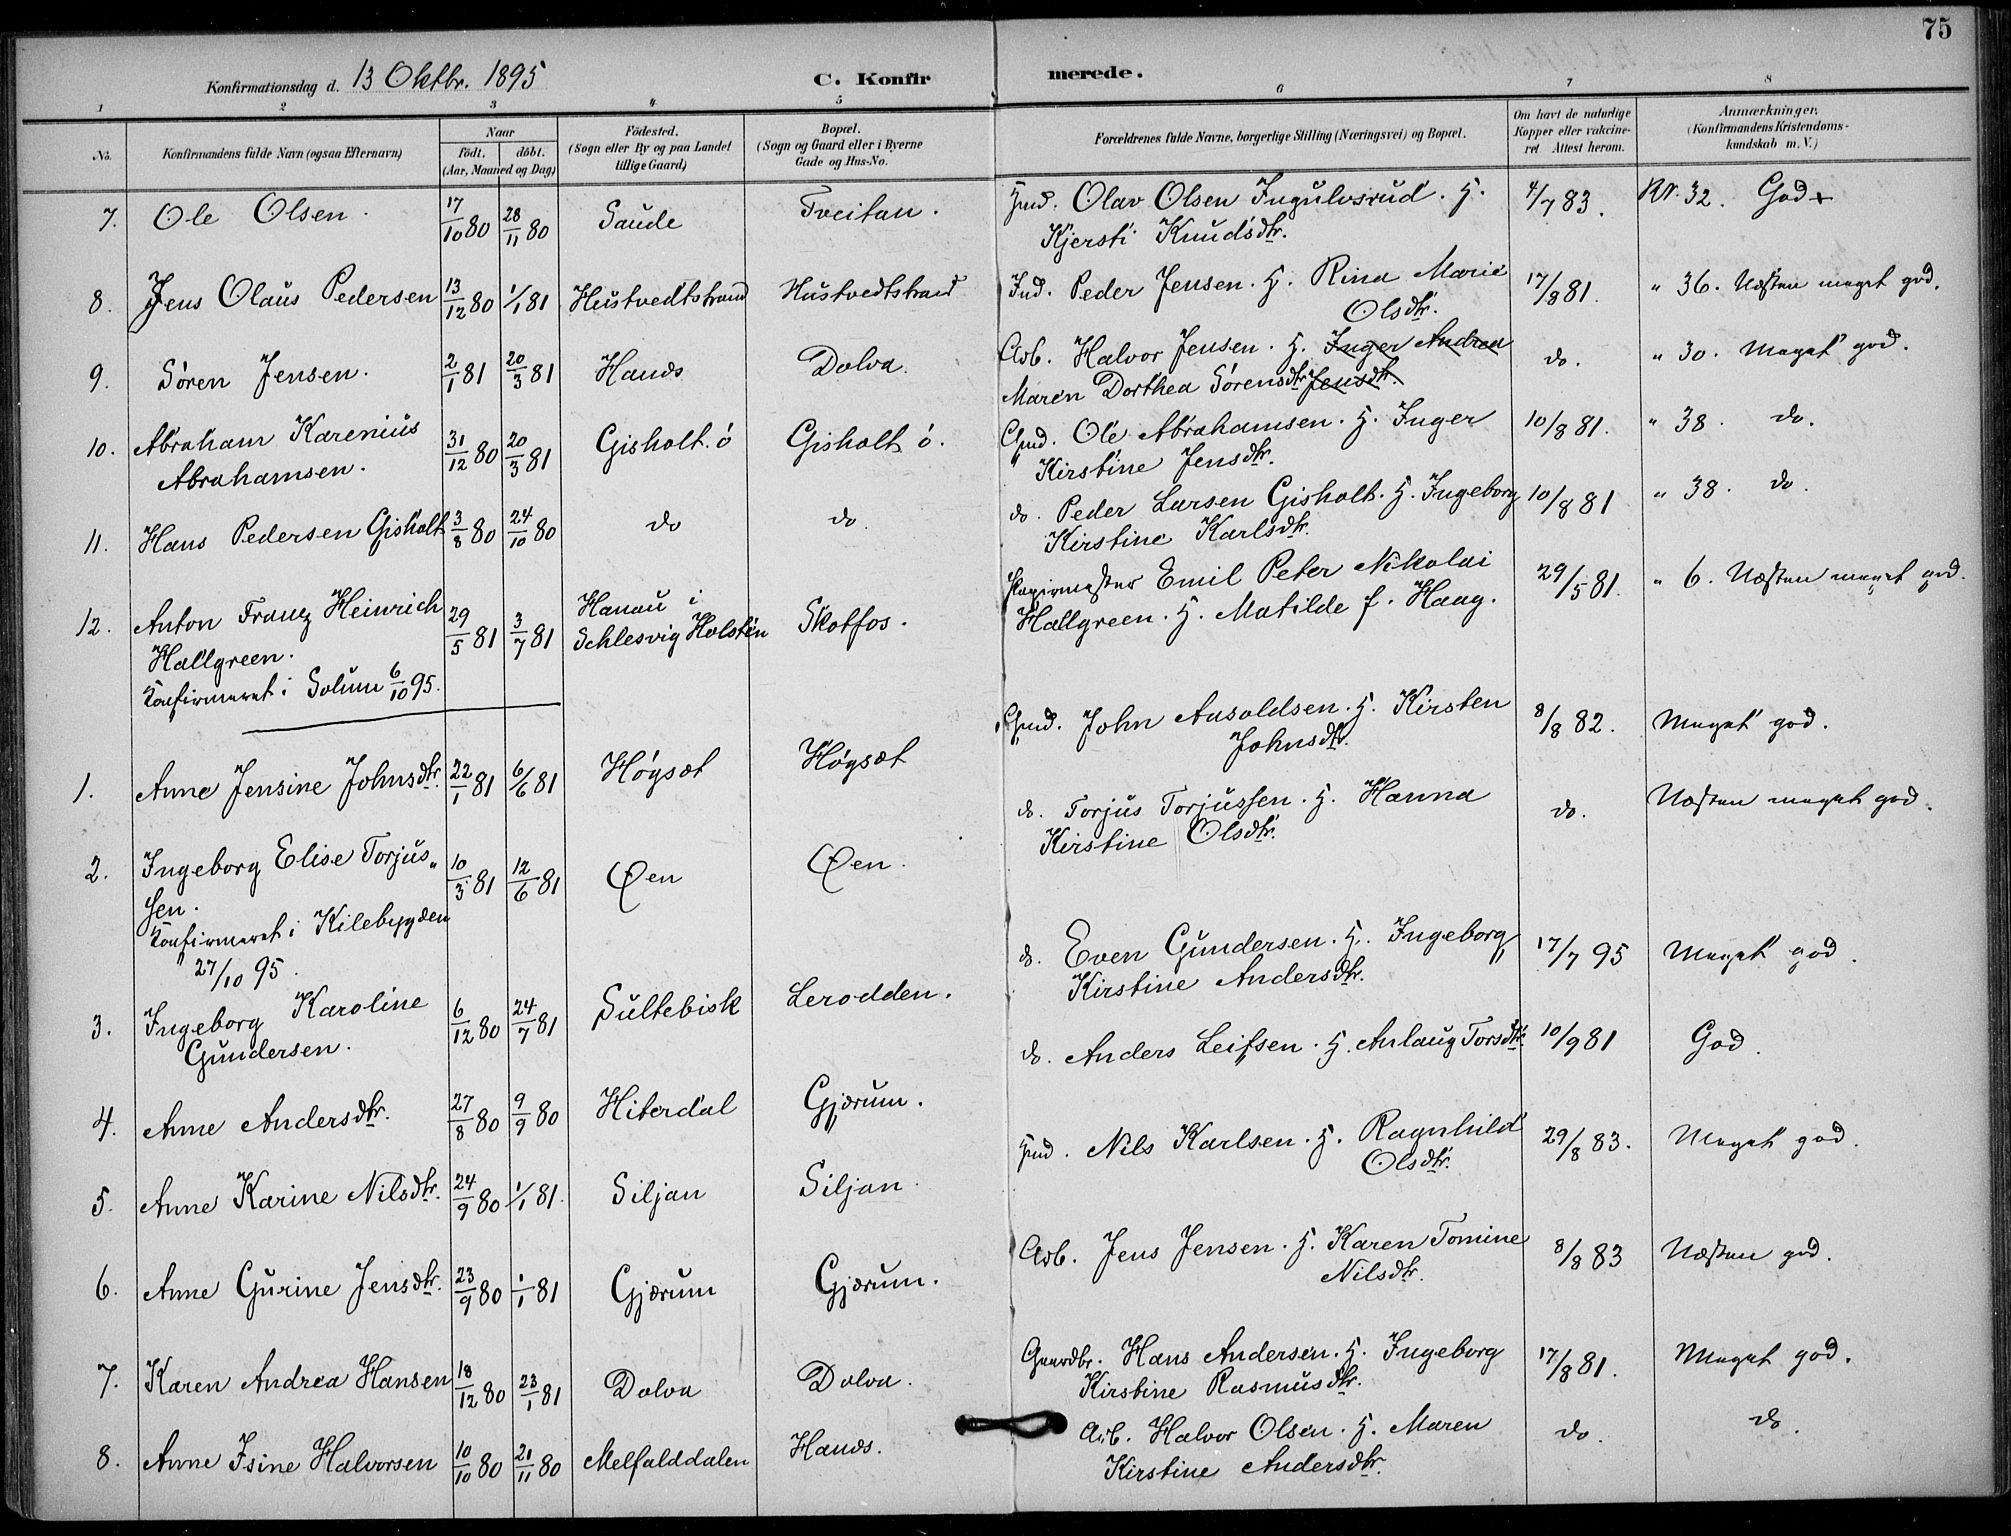 75
Konfirmationsdag d. 13 Oktbr. 1895 C. Konfirmerede.
1 2 3 4 5 6 7 8
No. Konfirmandens fulde Navn (ogsaa Efternavn) Naar födt. döbt. (Aar, Maaned og Dag) Födested. (Sogn eller By og paa Landet tillige Gaard) Bopæl. (Sogn og Gaard eller i Byerne Gade og Hus-No. Forældrenes fulde Navne, borgerlige Stilling (Næringsvei) og Bopæl. Om havt de naturlige Kopper eller vakcineret Attest herom. Anmærkninger. (Konfirmandens Kristendomskundskab m. V.)
7. Ole Olsen. 17/10 80 28/11 80 Saude Tveitan. Olav Olsen Ingulvsrud. H. 4/7 83. Nr. 32. God
Kjersti Knudsdtr.
8. Jens Olaus Pedersen 13/12 80 1/1 81 Hustvedtstrand Hustvedtstrand Ind. Peder Jensen. H. Rina Marie 17/8 81. " 36. Næsten meget god.
Olsdtr.
9. Sören Jensen. 2/1 81 20/3 81 Hanes Dolva. Arb. Halvor Jensen. H. Inger Andrea do. " 30. Meget god.
Maren Dorthea Sörensdtr. Jensdtr.
10. Abraham Karenius 31/12 80 20/3 81 Gisholt ö Gisholt ö. Gmd. Ole Abrahamsen. H. Inger 10/8 81. " 38. do.
Abrahamsen. Kirstine Jensdtr.
11. Hans Pedersen Gisholt 3/8 80 24/10 80 do do. do. Peder Larsen Gisholt. H. Ingeborg 10/8 81 " 38. do.
Kirstine Karlsdtr.
12. Anton Franz Heinrich 29/5 81 3/7 81 Hanau i Skotfos. Papirmester Emil Peter Nikolai 29/5 81. " 6. Næsten meget god.
Hallgreen. Schlesvig Holsten Hallgreen. H. Matilde f. Haag.
Konfirmeret i Solum 6/10 95.
1. Anne Jensine Johnsdtr. 22/1 81 6/6 81 Högsæt Högsæt Gmd. John Ansoldsen. H. Kirsten 8/8 82. Meget god.
Johnsdtr.
2. Ingeborg Elise Torjus" 10/3 81 12/6 81 Øen Øen. do. Torjus Torjussen. H. Hanna do. Næsten meget god.
sen. Kirstine Olsdtr.
Konfirmeret i Kilebygden
27/10 95.
3. Ingeborg Karoline 6/12 80 24/7 81 Sultebisk Lerodden. do. Even Gundersen. H. Ingeborg 17/7 95 Meget god.
Gundersen. Kirstine Andersdtr.
4. Anne Andersdtr. 27/8 80 9/9 80 Hiterdal Gjærum. do. Anders Leifsen. H. Anlaug Torsdtr. 10/9 81 God.
5. Anne Karine Nilsdtr. 24/9 80 1/1 81. Siljan Siljan. Nils Karlsen. H. Ragnhild 29/8 83. Meget god.
Olsdtr.
6. Anne Gurine Jensdtr. 23/9 80 1/1 81 Gjærum Gjærum. Arb. Jens Jensen. H. Karen Tomine 8/8 83 Næsten god.
Nilsdtr.
7. Karen Andrea Hansen 18/12 80 23/1 81 Dolva Dolva. Gaardbr. Hans Andersen. H. Ingeborg 17/8 81. Meget god.
Kirstine Rasmusdtr.
8. Anne Isine Halvorsen 10/10 80 21/11 80 Melfalddalen Hanes. Arb. Halvor Olsen. H. Maren do. do.
Kirstine Andersdtr.